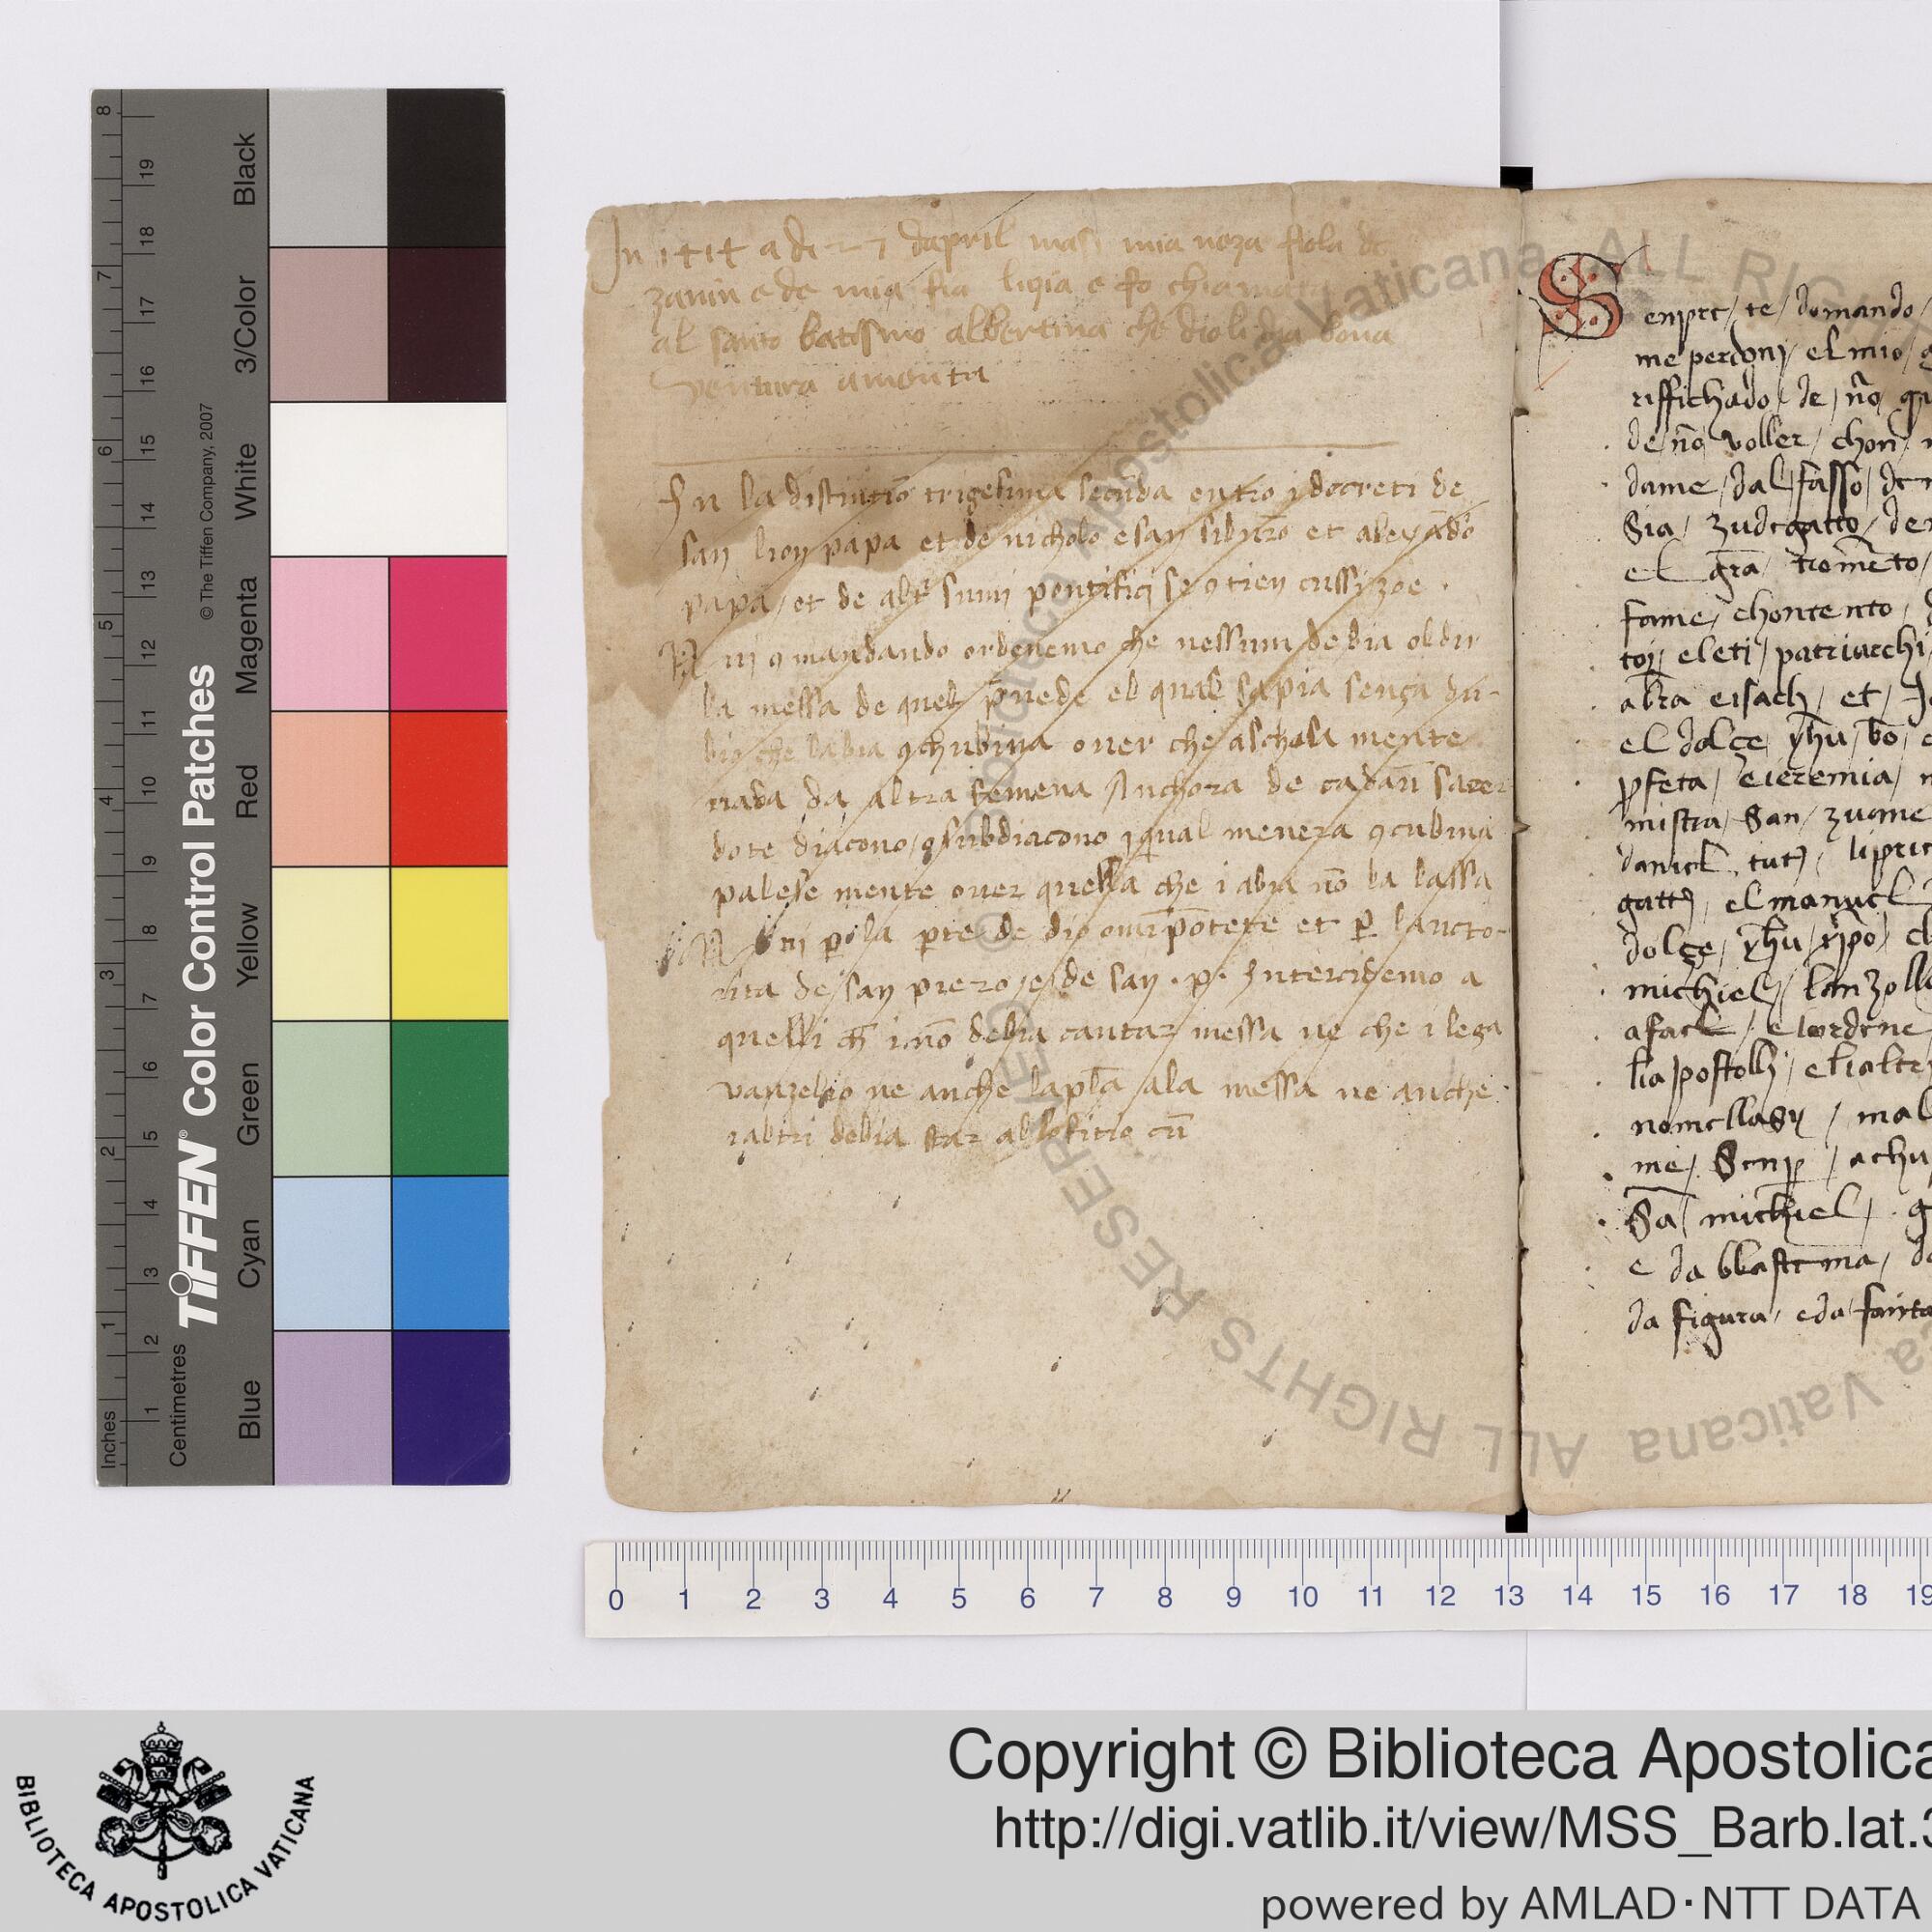 In 1414 a di 27 dapril nasi mia neza fiola de
zanin e de mia fia liqia e fo chiamata
al santo batesmo albertina che dio li dia bona
ventura amenta
In la distintio trigesima secuda entro i decreti de
san lion papa et de nicholo e san siluro et alexado
papa / et de alt sumi pontifici se otien cussi zoe .
Nui 9mandando ordenemo che nessun debia oldir
la messa de quel pvede el qual sapia senza du-
bio che labia 9chubina over che ascholamente
nada da altra femena Anchora de cadau sacer
dote diacono / o subdiacono iqual menera 9cubina
palese mente over quella che i abia no la lassa
Nui p la pte de dio onipotete et p laucto-
rita de san piero / e de san . p . Intercidemo a
quelli ch i no debia cantar messa ne che i lega
vanzelio ne anche lapla ala messa ne anche
i altri debia star allofitio cu
S
enpre / te / domando /
me perdonj / el mio /
riffichado / de / no
de no / voller / chon
dame / dal fasso /
Sia / zudegatto / de
el gra trometo /
fame / chontento /
toj / eleti / patriarchi
abra eisach / et /
el dolçe yhu / bo /
pfeta / e ieremia /
mistra / San / zuane
daniel . tutj / li
gattj / el manuel
dolçe / yhu / xpo
michiel / lanzollo
a farle / e lordene
lia postollj / e li altrj
nomellasy / mal
me / Senp / achu
Sa michiel / .
e da blastema /
da figura / e da fanta
Biblioteca Apostolica Vaticana ALL RIGHTS RESERVED
TIFFEN® Color Control Patches
© The Tiffen Company, 2007
Inches
1 2 3 4 5 6 7 8
Centimetres
1 2 3 4 5 6 7 8 9 10 11 12 13 14 15 16 17 18 19
Blue Cyan Green Yellow Red Magenta White 3/Color Black
0 1 2 3 4 5 6 7 8 9 10 11 12 13 14 15 16 17 18 19
BIBLIOTECA APOSTOLICA VATICANA
Copyright © Biblioteca Apostolica
http://digi.vatlib.it/view/MSS_Barb.lat.3
powered by AMLAD·NTT DATA